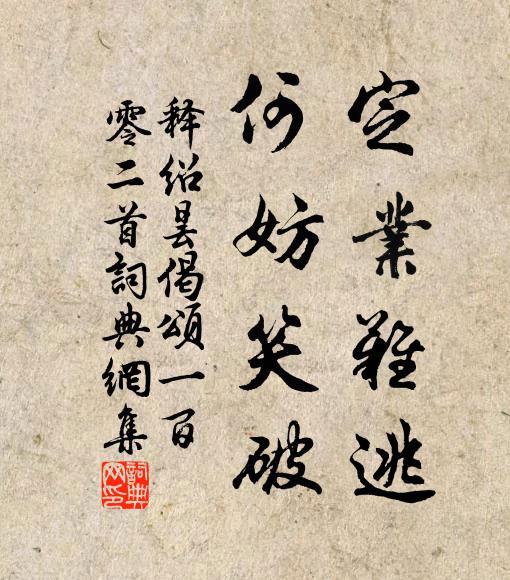 定業難逃
何妨笑破
释紹曇偈頌一百
零二首詞典網集
詞典網印